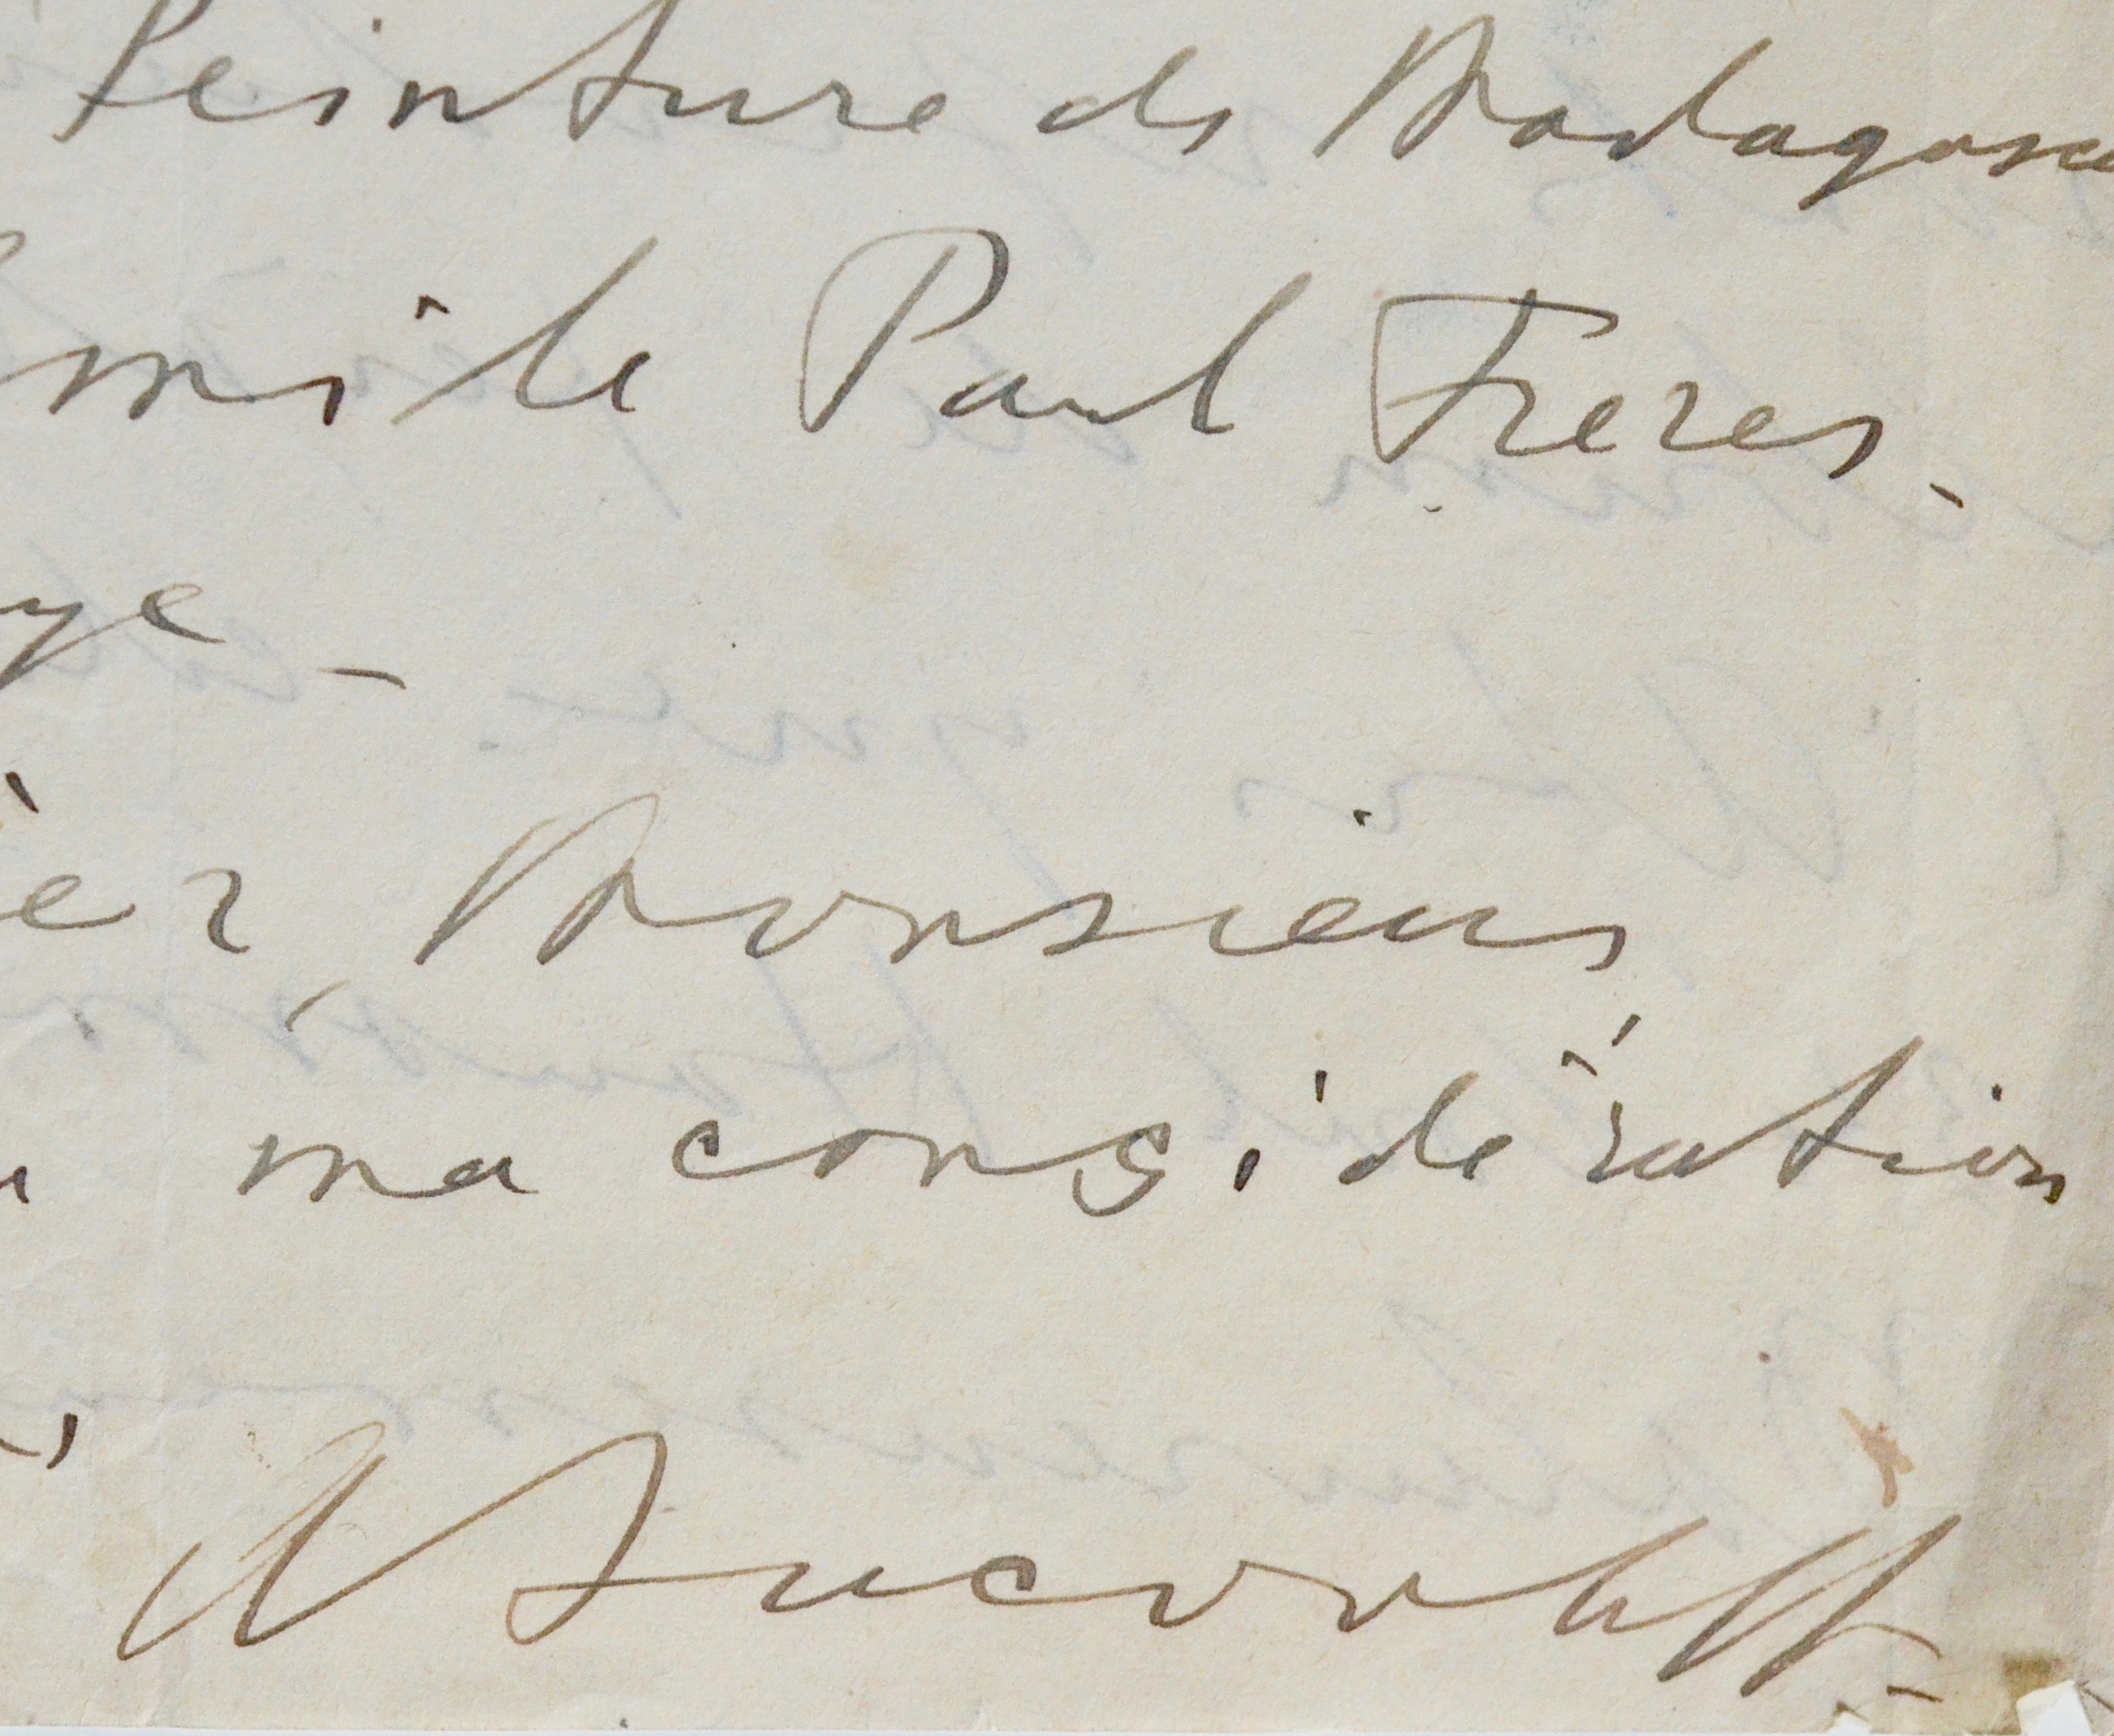 Peinture de Madagasc
mile Paul Freres.
ye -
èr Monsieur,
ma considération
A Iacovleff-